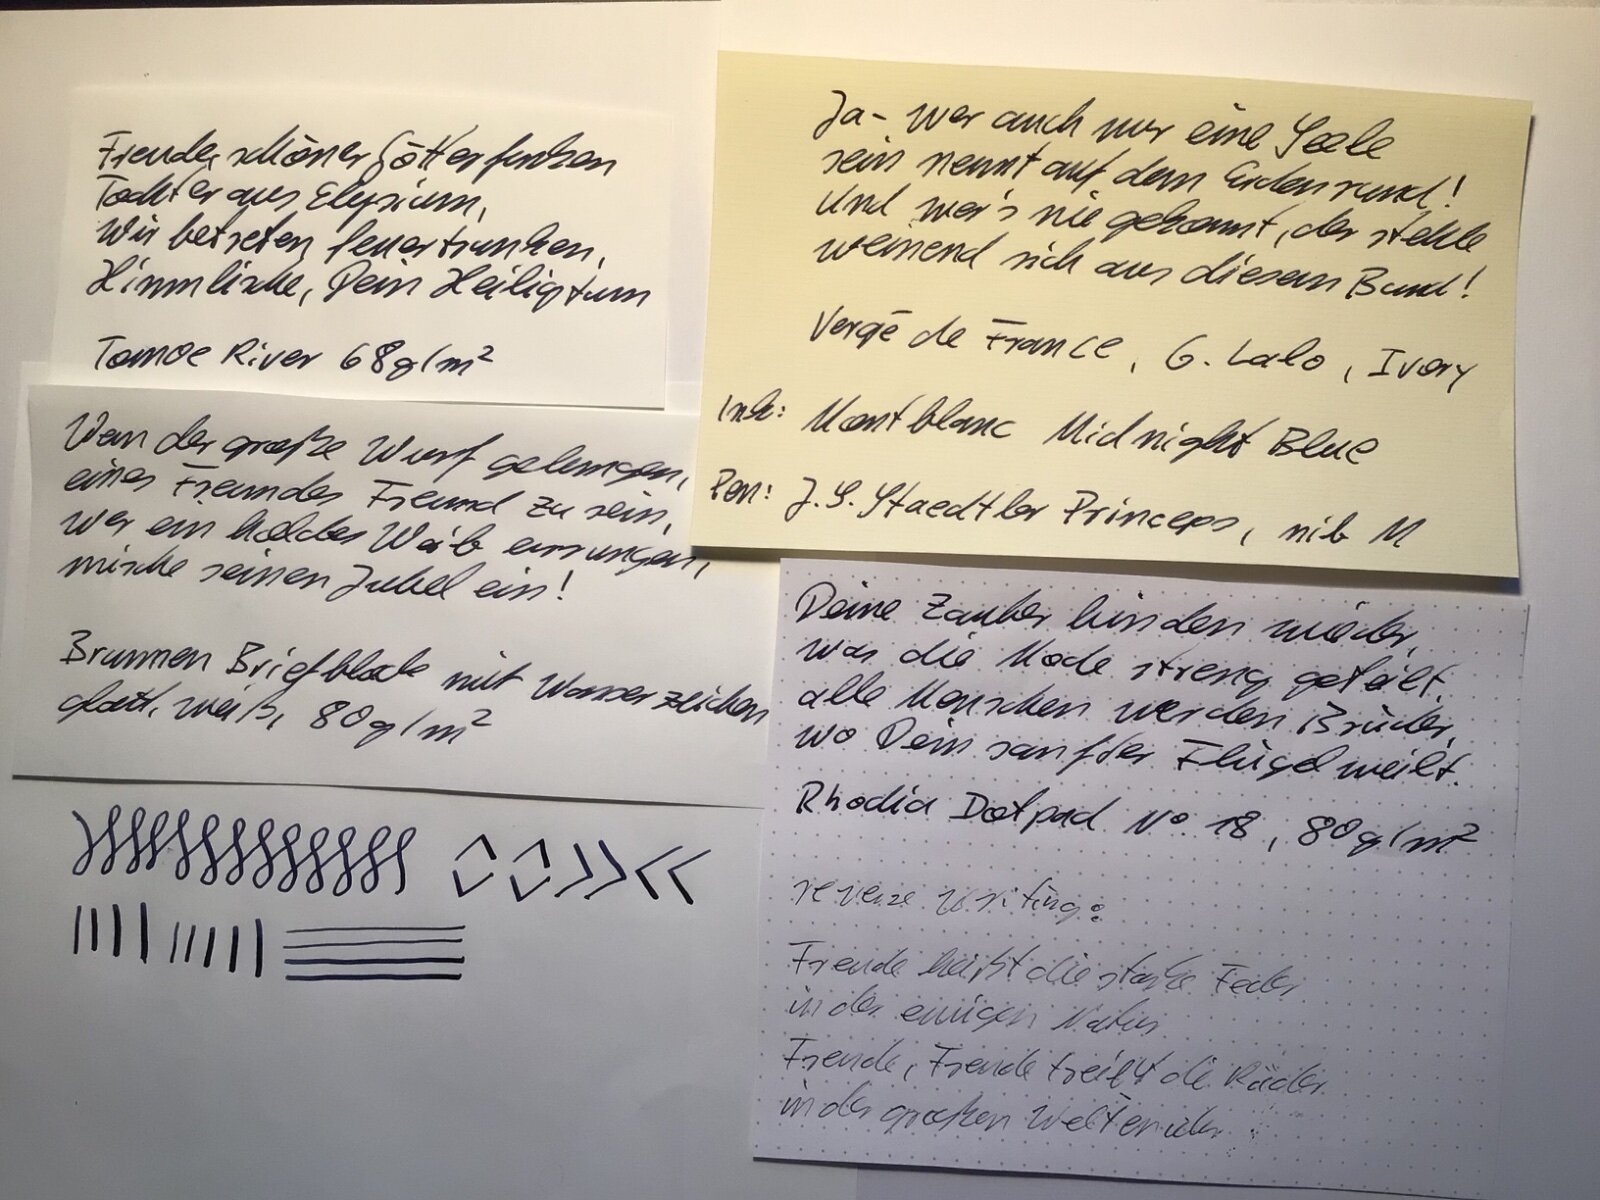 Freude, schöner Götterfunken
Tochter aus Elysium,
Wir betreten feuertrunken,
Himmlische, Dein Heiligtum
Tomoe River 68g/m²
Wem der große Wurf gelungen,
eines Freundes Freund zu sein,
wer ein holdes Weib errungen,
mische seinen Jubel ein!
Brunnen Briefblock mit Wasserzeichen
glatt, weiß, 80g/m²
Ja - wer auch nur eine Seele
sein nennt auf dem Erdenrund!
Und wer's nie gekonnt, der stehle
weinend sich aus diesem Bund!
Vergé de France, G. Lalo, Ivory
Ink: Montblanc Midnight Blue
Pen: J.S. Staedtler Princeps, nib M
Deine Zauber binden wieder,
was die Mode streng geteilt,
alle Menschen werden Brüder,
wo Dein sanfter Flügel weilt.
Rhodia Dotpad No. 18, 80g/m²
reverse writing:
Freude heißt die starke Feder
in der ewigen Natur
Freude, Freude treibt die Räder
in der großen Weltenuhr